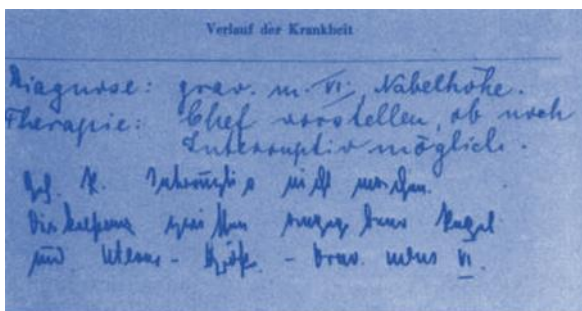 Verlauf der Krankheit
Diagnose: grav. m. VI; Nabelhöhe.
Therapie: Chef vorstellen, ob noch
Interruptio möglich.
Interruptio nicht machen.
Diskrepanz zwischen Regel
und Uterus - Größe. - Grav. mens VI.